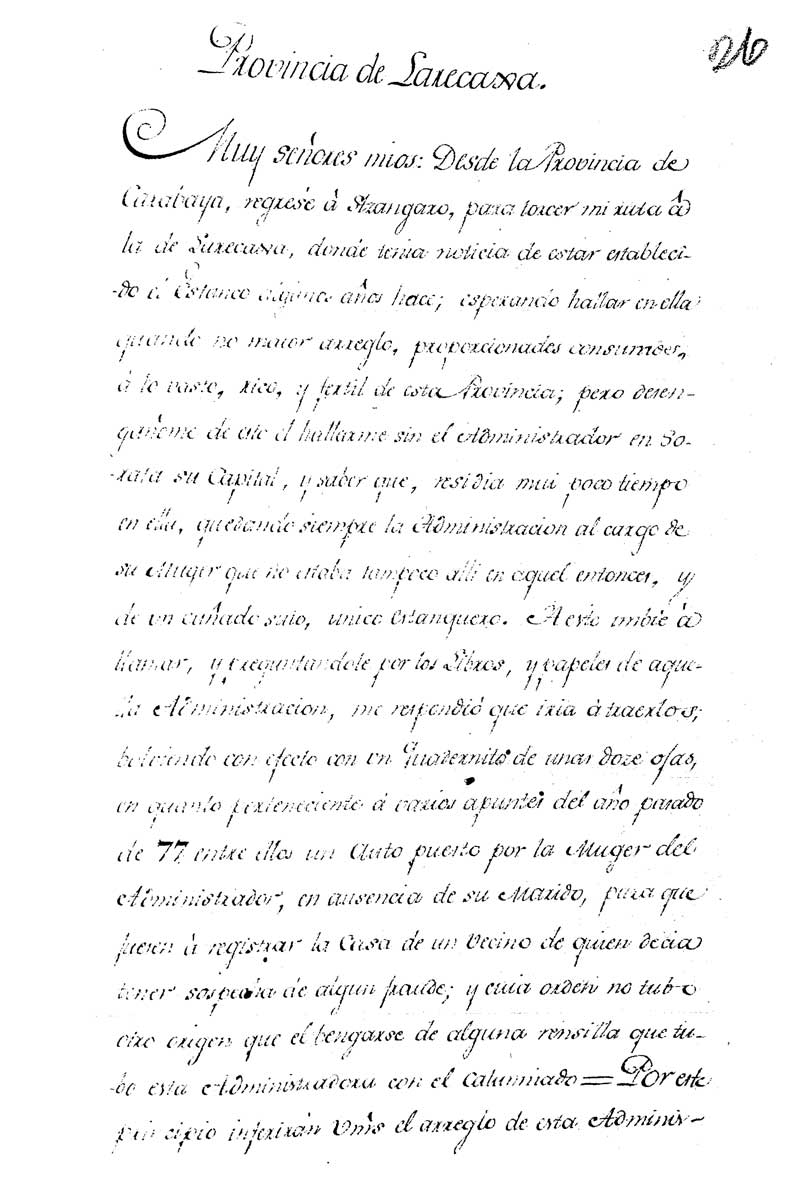 26
Provincia de Larecaxa.
Muy señores mios: Desde la Provincia de
Carabaya, regresé à Azangaro, para torcer mi ruta â
la de Larecaxa, donde tenia noticia de estar estableci-
-do el Estanco algunos años hace; esperando hallar en ella
quando no maior arreglo, proporcionados consumos,
à lo vasto, rico, y fertil de esta Provincia; pero desen-
gañeme de ello el hallarme sin el Administrador en So-
-rata su Capital, y saber que, residia mui poco tiempo
en ella, quedando siempre la Administracion al cargo de
su Muger que no estaba tampoco alli en aquel entonces, y
de un cuñado suio, unico Estanquero. A este imbié à
llamar, y preguntandole por los Libros, y papeles de aque-
-lla Administracion, me respondió que iria à traerlos;
bolviendo con efecto con un Quaternito de unas doze ojas,
en quanto perteneciente à varios apuntes del año pasado
de 77 entre ellos un Auto puesto por la Muger del
Administrador, en ausencia de su Marido, para que
fuesen à registrar la Casa de un Vecino de quien decia
tener sospecha de algun fraude; y cuia orden no tubo
otro origen que el bengarse de alguna rensilla que tu-
-bo esta Administradora con el Calumniado = Por este
principio inferirán Vm̃s el arreglo de esta Adminis-